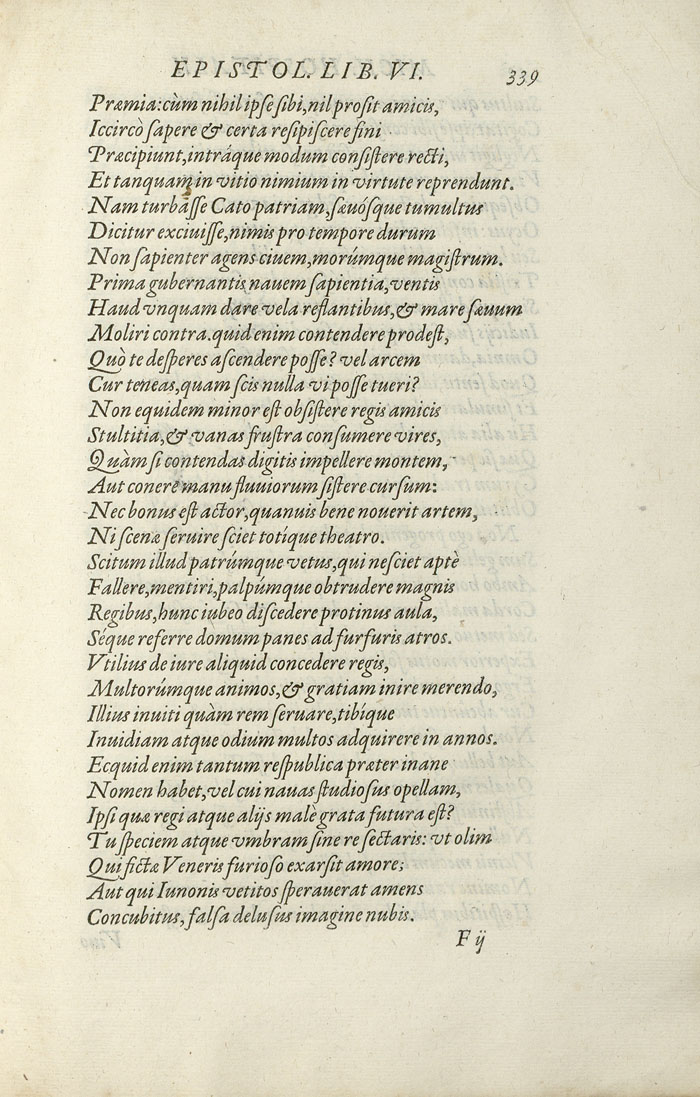 EPISTOL. LIB. VI. 339
Præmia: cùm nihil ipse sibi, nil prosit amicis,
Iccircò sapere & certa resipiscere fini
Præcipiunt, intráque modum consistere recti,
Et tanquam in vitio nimium in virtute reprendunt.
Nam turbâsse Cato patriam, sæuósque tumultus
Dicitur exciuisse, nimis pro tempore durum
Non sapienter agens ciuem, morúmque magistrum.
Prima gubernantis nauem sapientia, ventis
Haud vnquam dare vela reflantibus, & mare sæuum
Moliri contra. quid enim contendere prodest,
Quò te desperes ascendere posse? vel arcem
Cur teneas, quam scis nulla vi posse tueri?
Non equidem minor est obsistere regis amicis
Stultitia, & vanas frustra consumere vires,
Quàm si contendas digitis impellere montem,
Aut conere manu fluuiorum sistere cursum:
Nec bonus est actor, quanuis bene nouerit artem,
Ni scenæ seruire sciet totíque theatro.
Scitum illud patrúmque vetus, qui nesciet aptè
Fallere, mentiri, palpúmque obtrudere magnis
Regibus, hunc iubeo discedere protinus aula,
Séque referre domum panes ad furfuris atros.
Vtilius de iure aliquid concedere regis,
Multorúmque animos, & gratiam inire merendo,
Illius inuiti quàm rem seruare, tibíque
Inuidiam atque odium multos adquirere in annos.
Ecquid enim tantum respublica præter inane
Nomen habet, vel cui nauas studiosus opellam,
Ipsi quæ regi atque alijs malè grata futura est?
Tu speciem atque vmbram sine re sectaris: vt olim
Qui fictæ Veneris furioso exarsit amore;
Aut qui Iunonis vetitos sperauerat amens
Concubitus, falsa delusus imagine nubis.
F ij